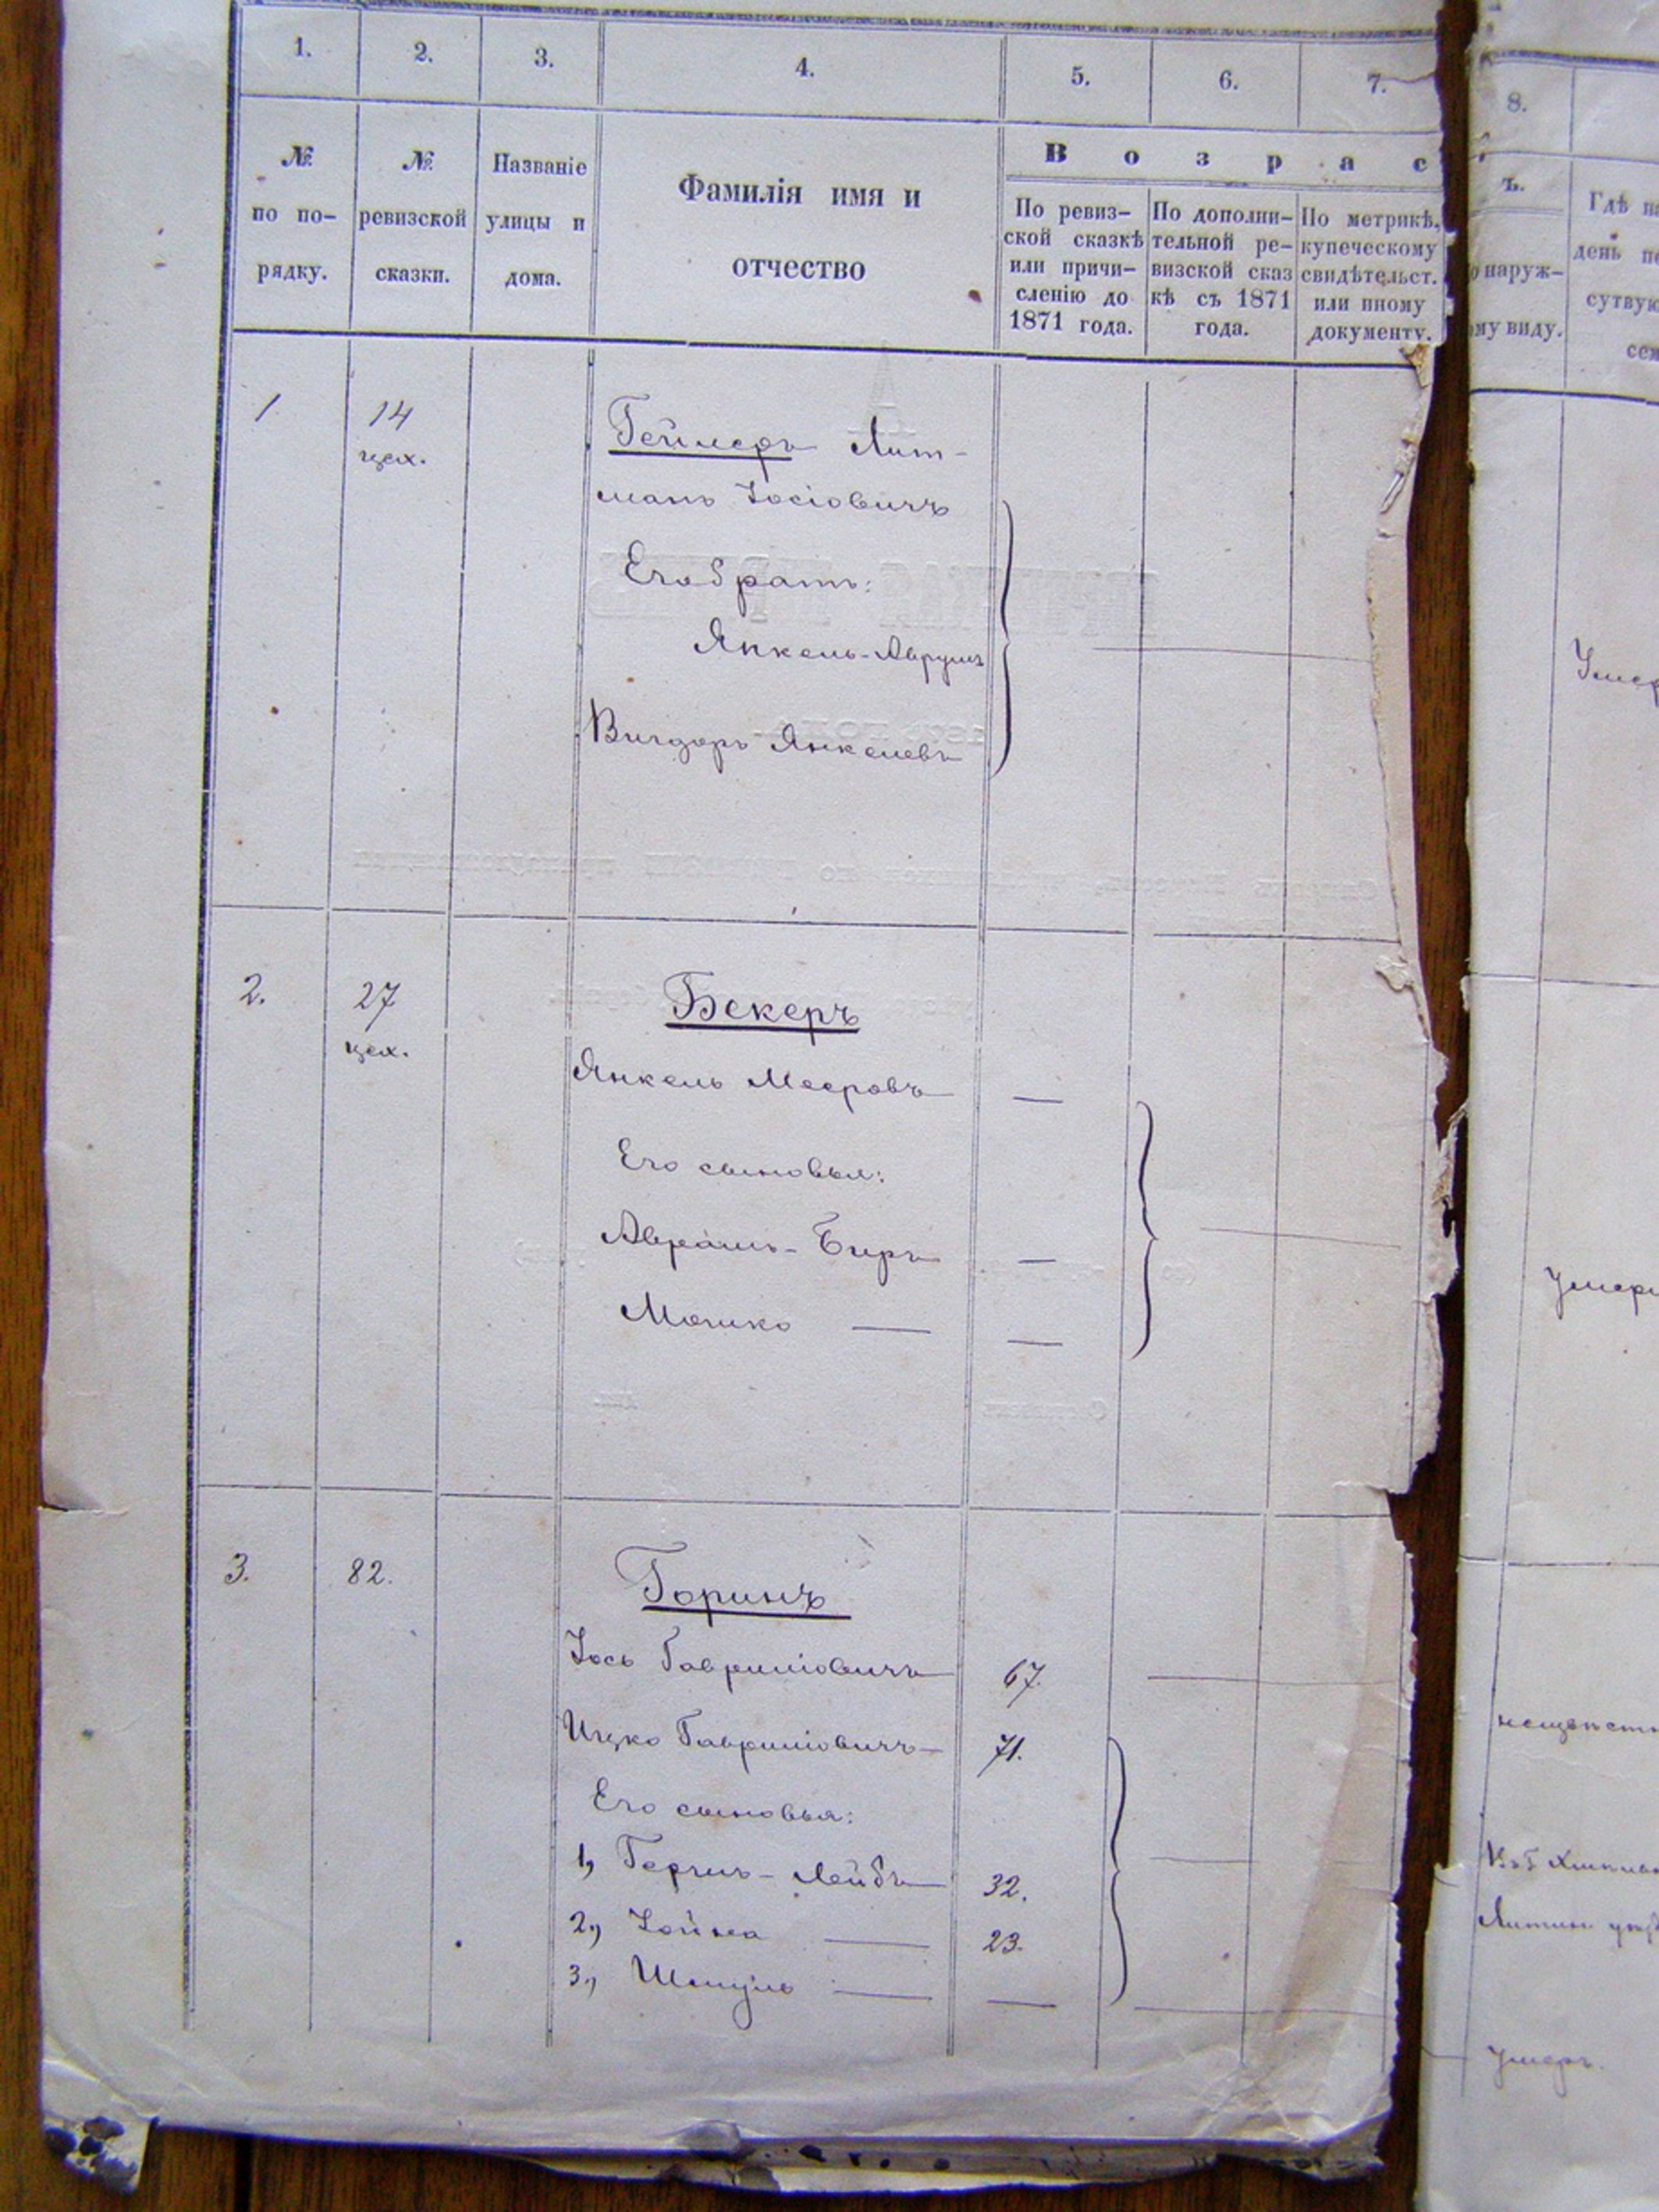 1. 2. 3. 4. 5. 6. 7.
№ по по-
рядку.
№
ревизской
сказки.
Названіе
улицы и
дома.
Фамилія имя и
отчество
В о з р а с
По ревиз-
ской сказкѣ
или причи-
сленію до
1871 года.
По дополни-
тельной ре-
визской сказ
кѣ съ 1871
года.
По метрикѣ,
купеческому
свидѣтельст.
или иному
документу.
1 14
цех.
Геймеръ Лит-
манъ Іосіовичъ
Его братъ:
Янкель-Аврумъ
Вигдоръ Янкелевъ
2. 27
цех.
Бекеръ
Янкель Мееровъ —
Его сыновья:
Аврамъ-Беръ —
Мошко — —
3. 82.
Горинъ
Іось Гавриліовичъ 67.
Ицко Гавриліовичъ 71.
Его сыновья:
1, Гершъ-Лейбъ 32.
2, Іойна — 23.
3, Шмуль — —
8.
ъ.
наруж-
му виду.
Гдѣ
день
сутвую
сем
Умер
Умеръ.